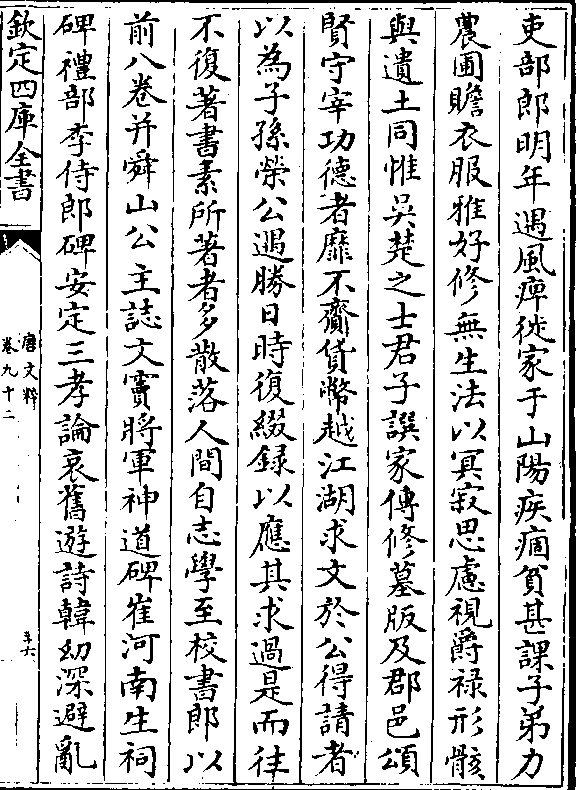 吏部郎明年遇風痺徙家于山陽疾痼貧甚課子弟力
農圃贍衣服雅好修無生法以冥寂思慮視爵祿形骸
與遺土同惟吳楚之士君子譔家傳修墓版及郡邑頌
賢守宰功德者靡不齎貨幣越江湖求文於公得請者
以為子孫榮公遇勝日時復綴録以應其求過是而往
不復著書素所著者多散落人間自志學至校書郎以
前八卷并舜山公主誌文竇將軍神道碑崔河南生祠
碑禮部李侍郎碑安定三孝論哀舊遊詩韓幼深避亂
欽定四庫全書
唐文粹
卷九十二